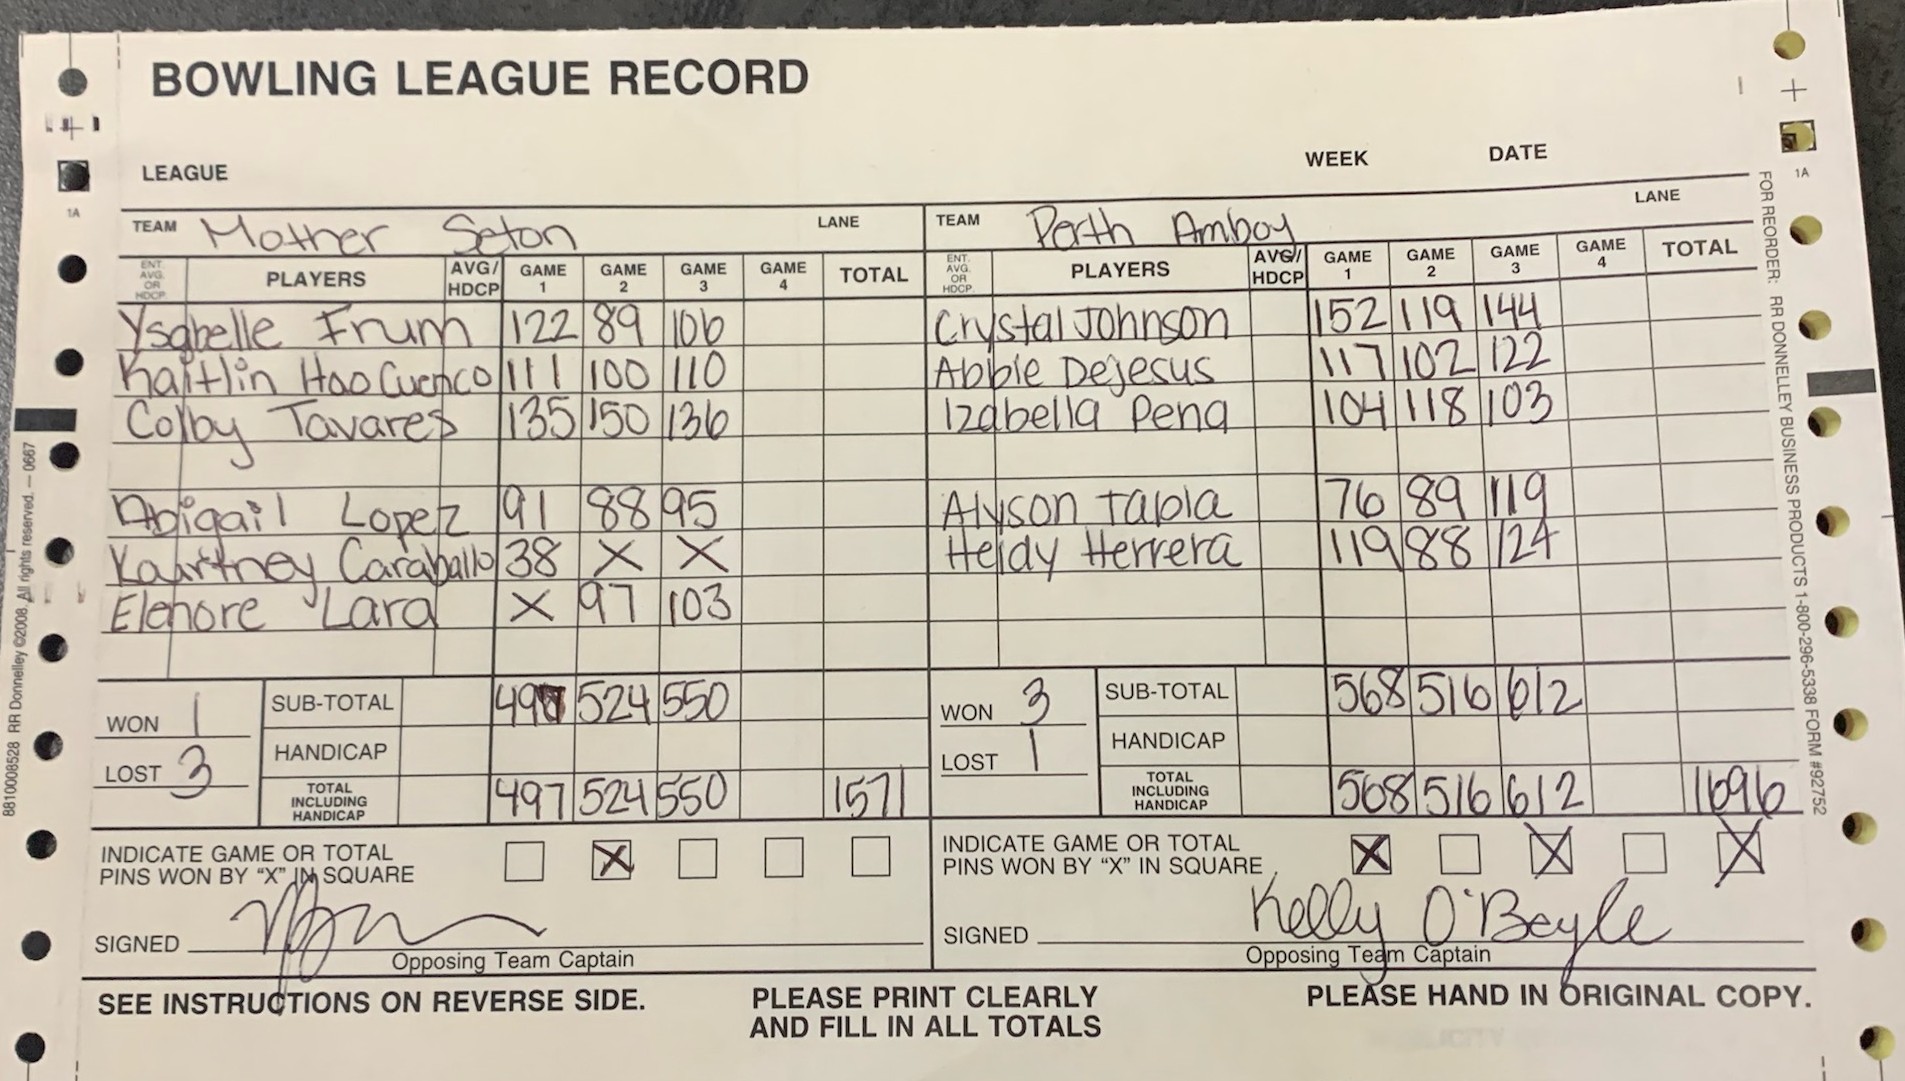 BOWLING LEAGUE RECORD
WEEK DATE
LEAGUE
1A 1A
TEAM Mother Seton LANE TEAM Perth Amboy LANE
ENT. AVG. OR HDCP. PLAYERS AVG/ HDCP GAME 1 GAME 2 GAME 3 GAME 4 TOTAL ENT. AVG. OR HDCP. PLAYERS AVG/ HDCP GAME 1 GAME 2 GAME 3 GAME 4 TOTAL
Ysabelle Frum 122 89 106 Crystal Johnson 152 119 144
Kaitlin Hao Cuenco 111 100 110 Abbie Dejesus 117 102 122
Colby Tavares 135 150 136 Izabella Pena 104 118 103
Abigail Lopez 91 88 95 Alyson Tapia 76 89 119
Kourtney Caraballo 38 X X Heidy Herrera 119 88 124
Elenore Lara X 97 103
WON 1 SUB-TOTAL 497 524 550 WON 3 SUB-TOTAL 568 516 612
LOST 3 HANDICAP LOST 1 HANDICAP
TOTAL INCLUDING HANDICAP 497 524 550 1571 TOTAL INCLUDING HANDICAP 568 516 612 1696
INDICATE GAME OR TOTAL X INDICATE GAME OR TOTAL X X X
PINS WON BY "X" IN SQUARE PINS WON BY "X" IN SQUARE
SIGNED SIGNED Kelly O'Boyle
Opposing Team Captain Opposing Team Captain
SEE INSTRUCTIONS ON REVERSE SIDE. PLEASE PRINT CLEARLY PLEASE HAND IN ORIGINAL COPY.
AND FILL IN ALL TOTALS
8810008528 RR Donnelley ©2008. All rights reserved. — 0667
FOR REORDER: RR DONNELLEY BUSINESS PRODUCTS 1-800-296-5338 FORM #92752